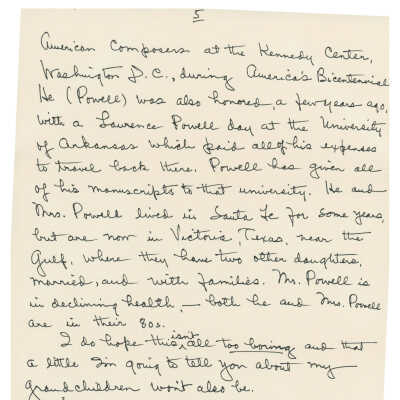 5
American Composers at the Kennedy Center,
Washington D.C., during America's Bicentennial
He (Powell) was also honored, a few years ago,
with a Laurence Powell day at the University
of Arkansas which paid all of his expenses
to travel back there. Powell has given all
of his manuscripts to that university. He and
Mrs. Powell lived in Santa Fe for some years,
but are now in Victoria, Texas, near the
Gulf, where they have two other daughters,
married, and with families. Mr. Powell is
in declining health, — both he and Mrs. Powell
are in their 80s.
I do hope this isn't all too boring and that
a little I'm going to tell you about my
grandchildren won't also be.